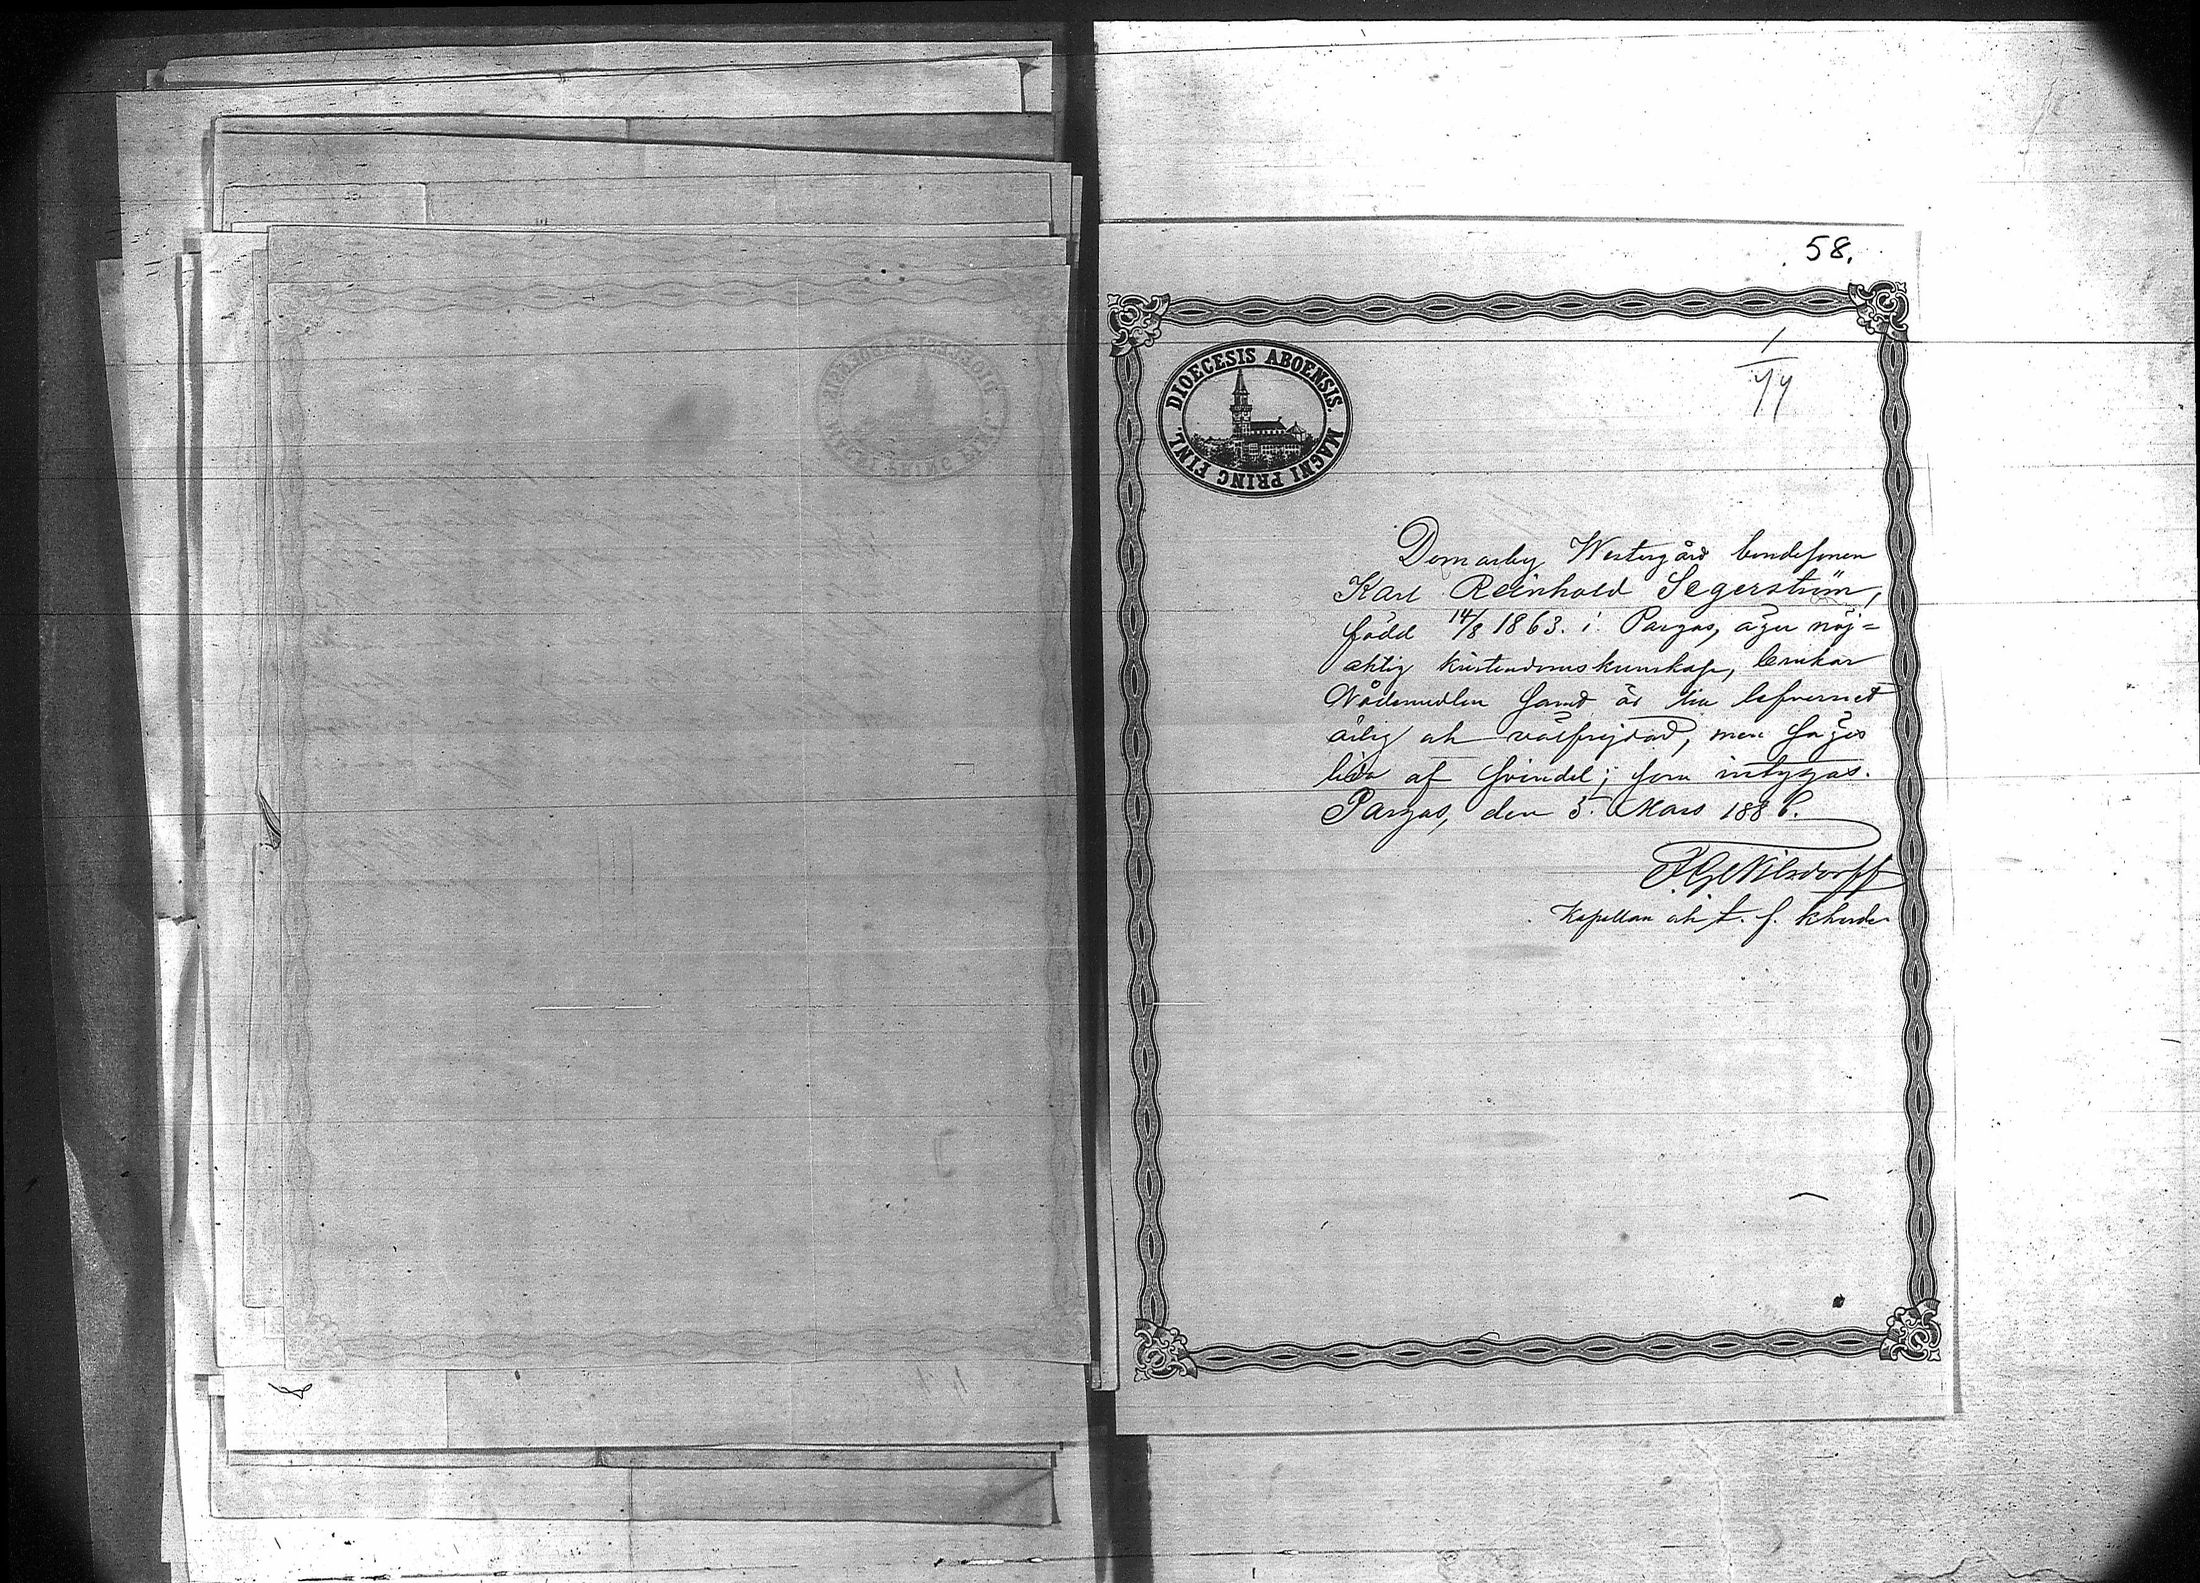 58.
1/44
DIOECESIS ABOENSIS.
MAGNI PRINC FINL.
Domarby Westergård bondesonen
Karl Reinhold Segerström,
född 14/8 1863. i Pargas, äger nöj=
aktig kristendomskunskap, brukar
Nådemedlen samt är till lefvernet
ärlig och välfrejdad, men säges
lida af svindel; som intygas.
Pargas, den 5. Mars 1886.
Nilsdorff
Kapellan och t. f. kherde